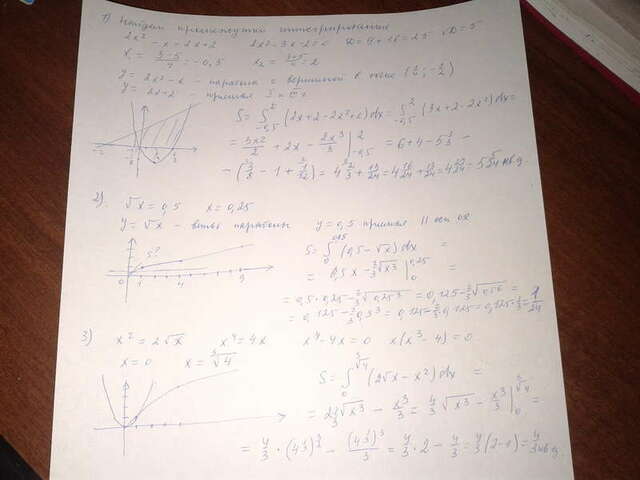 1) Найдем промежутки интегрирования
2x² - x = 2x+2   2x² - 3x - 2 = 0   D = 9+16 = 25   √D = 5
x₁ = (3-5)/4 = -0,5   x₂ = (3+5)/4 = 2
y = 2x² - x - парабола с вершиной в точке
y = 2x+2 - прямая
S = ∫_{-0,5}^{2} (2x+2-2x²+x)dx = ∫_{-0,5}^{2} (3x+2-2x²)dx =
= 3x²/2 + 2x - 2x³/3 |_{-0,5}^{2} = 6+4-5 1/3 -
- (3/8 - 1 + 1/12) =
2) √x = 0,5   x = 0,25
y = √x - ветвь параболы   y = 0,5 прямая || оси ox
S = ∫_{0}^{0,25} (0,5 - √x)dx =
= 0,5x - 2/3 √x³ |_{0}^{0,25} =
= 0,5·0,25 - 2/3 √0,25³ = 0,125 -
= 0,125 - 2/3 0,5³ = 0,125 - 2/3 0,125 = 0,125·1/3 = 1/24
3) x² = 2√x   x⁴ = 4x   x⁴ - 4x = 0   x(x³ - 4) = 0
x = 0   x = ∛4
S = ∫_{0}^{∛4} (2√x - x²)dx =
= 2·2/3 √x³ - x³/3 = 4/3 √x³ - x³/3 |_{0}^{∛4} =
= 4/3 · (4^{1/3})^{3/2} - (4^{1/3})³/3 = 4/3 · 2 - 4/3 = 4/3 (2-1) = 4/3 кв.ед.